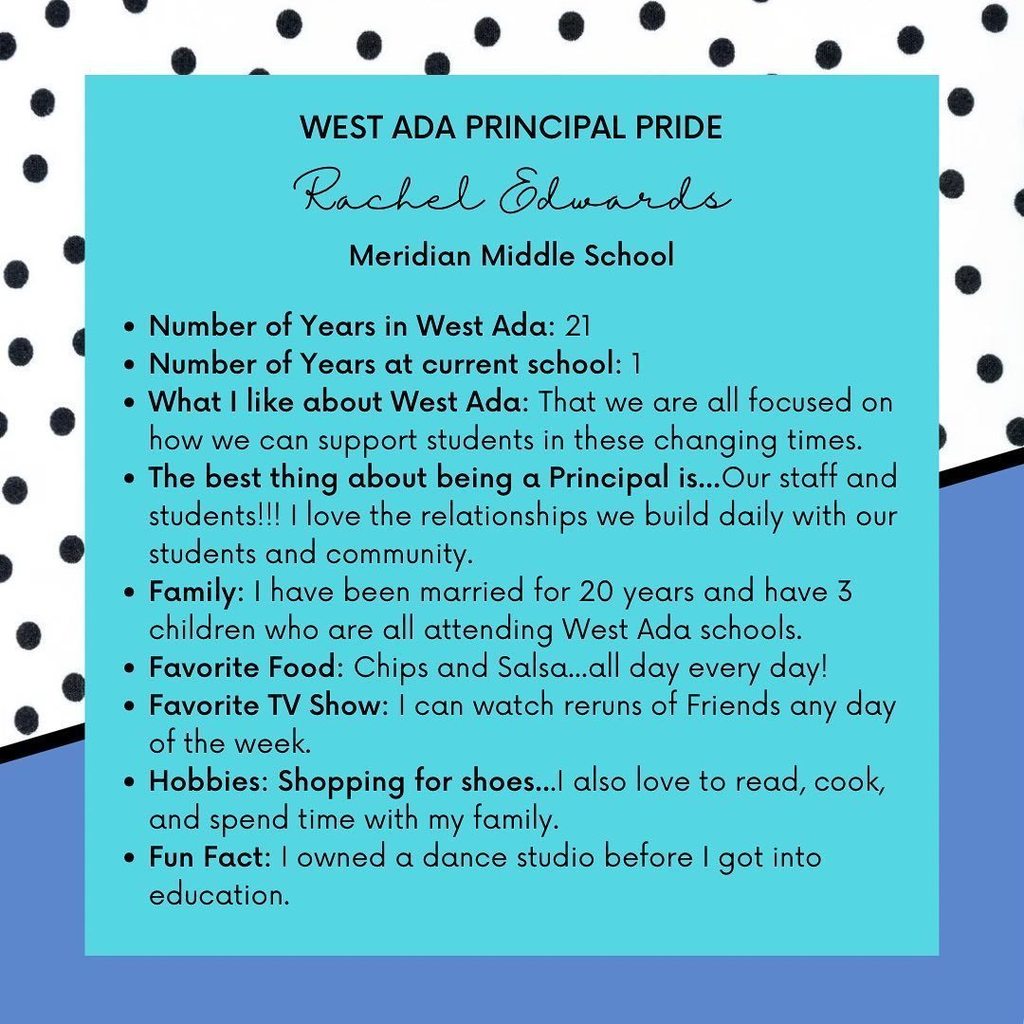 WEST ADA PRINCIPAL PRIDE
Rachel Edwards
Meridian Middle School
• Number of Years in West Ada: 21
• Number of Years at current school: 1
• What I like about West Ada: That we are all focused on
how we can support students in these changing times.
• The best thing about being a Principal is...Our staff and
students!!! I love the relationships we build daily with our
students and community.
• Family: I have been married for 20 years and have 3
children who are all attending West Ada schools.
• Favorite Food: Chips and Salsa...all day every day!
• Favorite TV Show: I can watch reruns of Friends any day
of the week.
• Hobbies: Shopping for shoes...I also love to read, cook,
and spend time with my family.
• Fun Fact: I owned a dance studio before I got into
education.